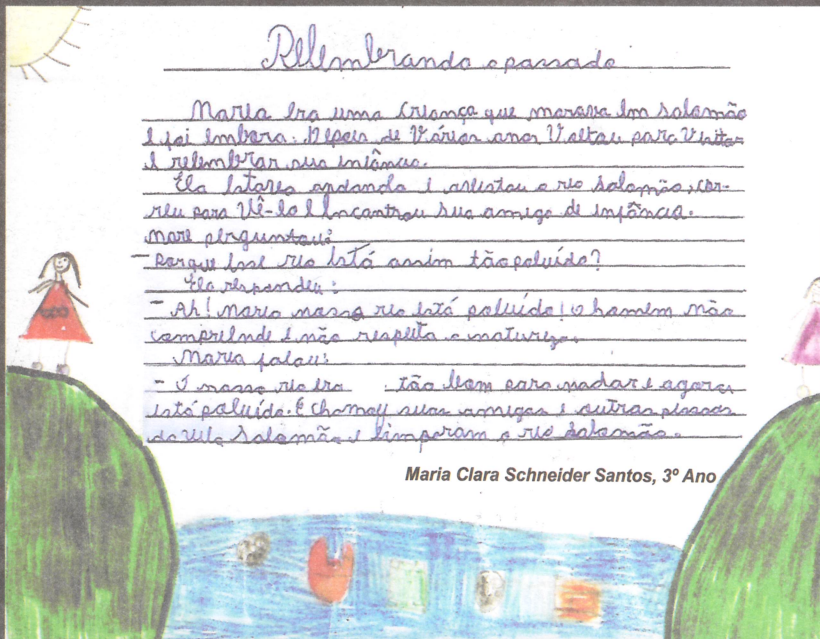 Relembrando o passado
Maria era uma criança que morava em Salomão
e foi embora. Depois de Vários anos Voltou para Visitar
e relembrar sua infância.
Ela estava andando e avistou o rio Salomão, cor-
reu para Vê-lo e encontrou sua amiga de infância.
perguntou:
- Porque esse rio está assim tão poluído?
Ela respondeu:
- Ah! Maria nosso rio está poluído! o homem não
compreende e não respeita a natureza.
Maria falou:
- O nosso rio era tão bom para nadar e agora
está poluído. E chamou suas amigas e outras pessoas
da vila Salomão e limparam o rio Salomão.
Maria Clara Schneider Santos, 3º Ano